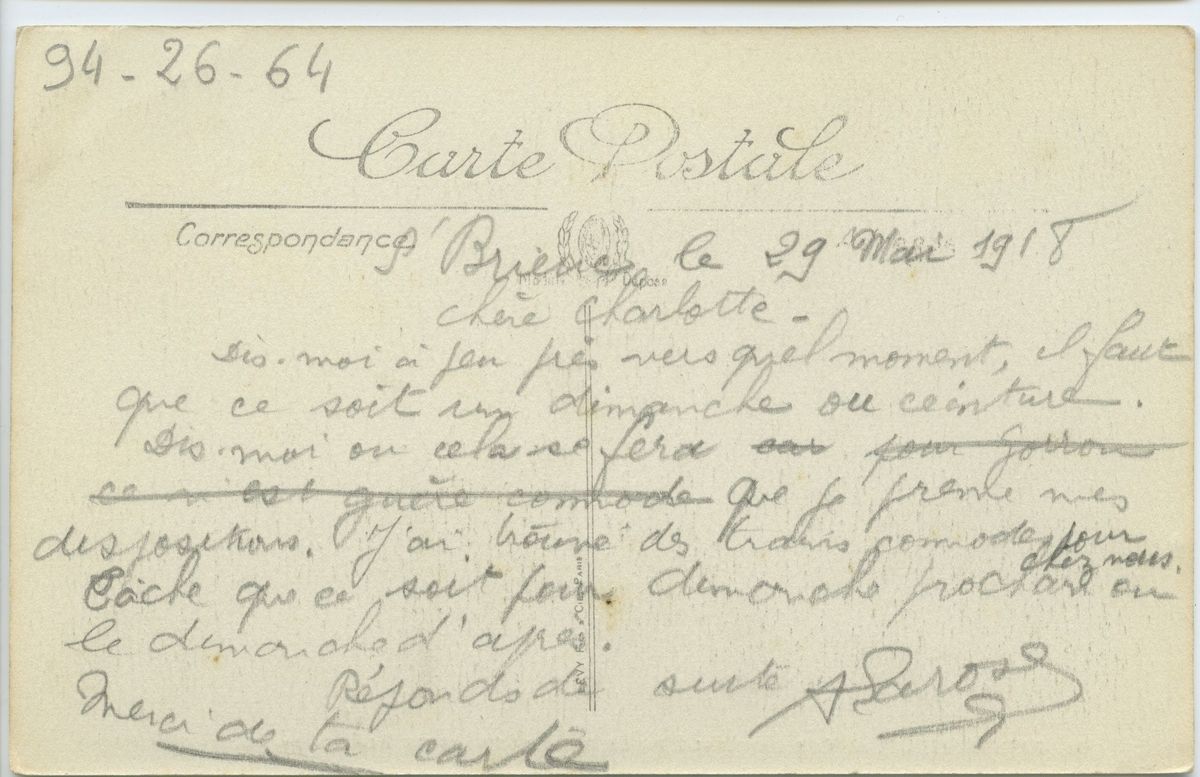 94-26-64
Carte Postale
Correspondance
St Brieuc, le 29 Mai 1918
chère Charlotte -
Dis-moi à peu près vers quel moment, il faut
que ce soit un dimanche ou ceinture.
Dis-moi ou cela se fera car pour
ce n'est guère commode que je prenne mes
dispositions. J'ai trouvé des trains commodes pour
chez nous.
Tâche que ce soit pour dimanche prochain ou
le dimanche d'après.
Réponds de suite
Merci de ta carte